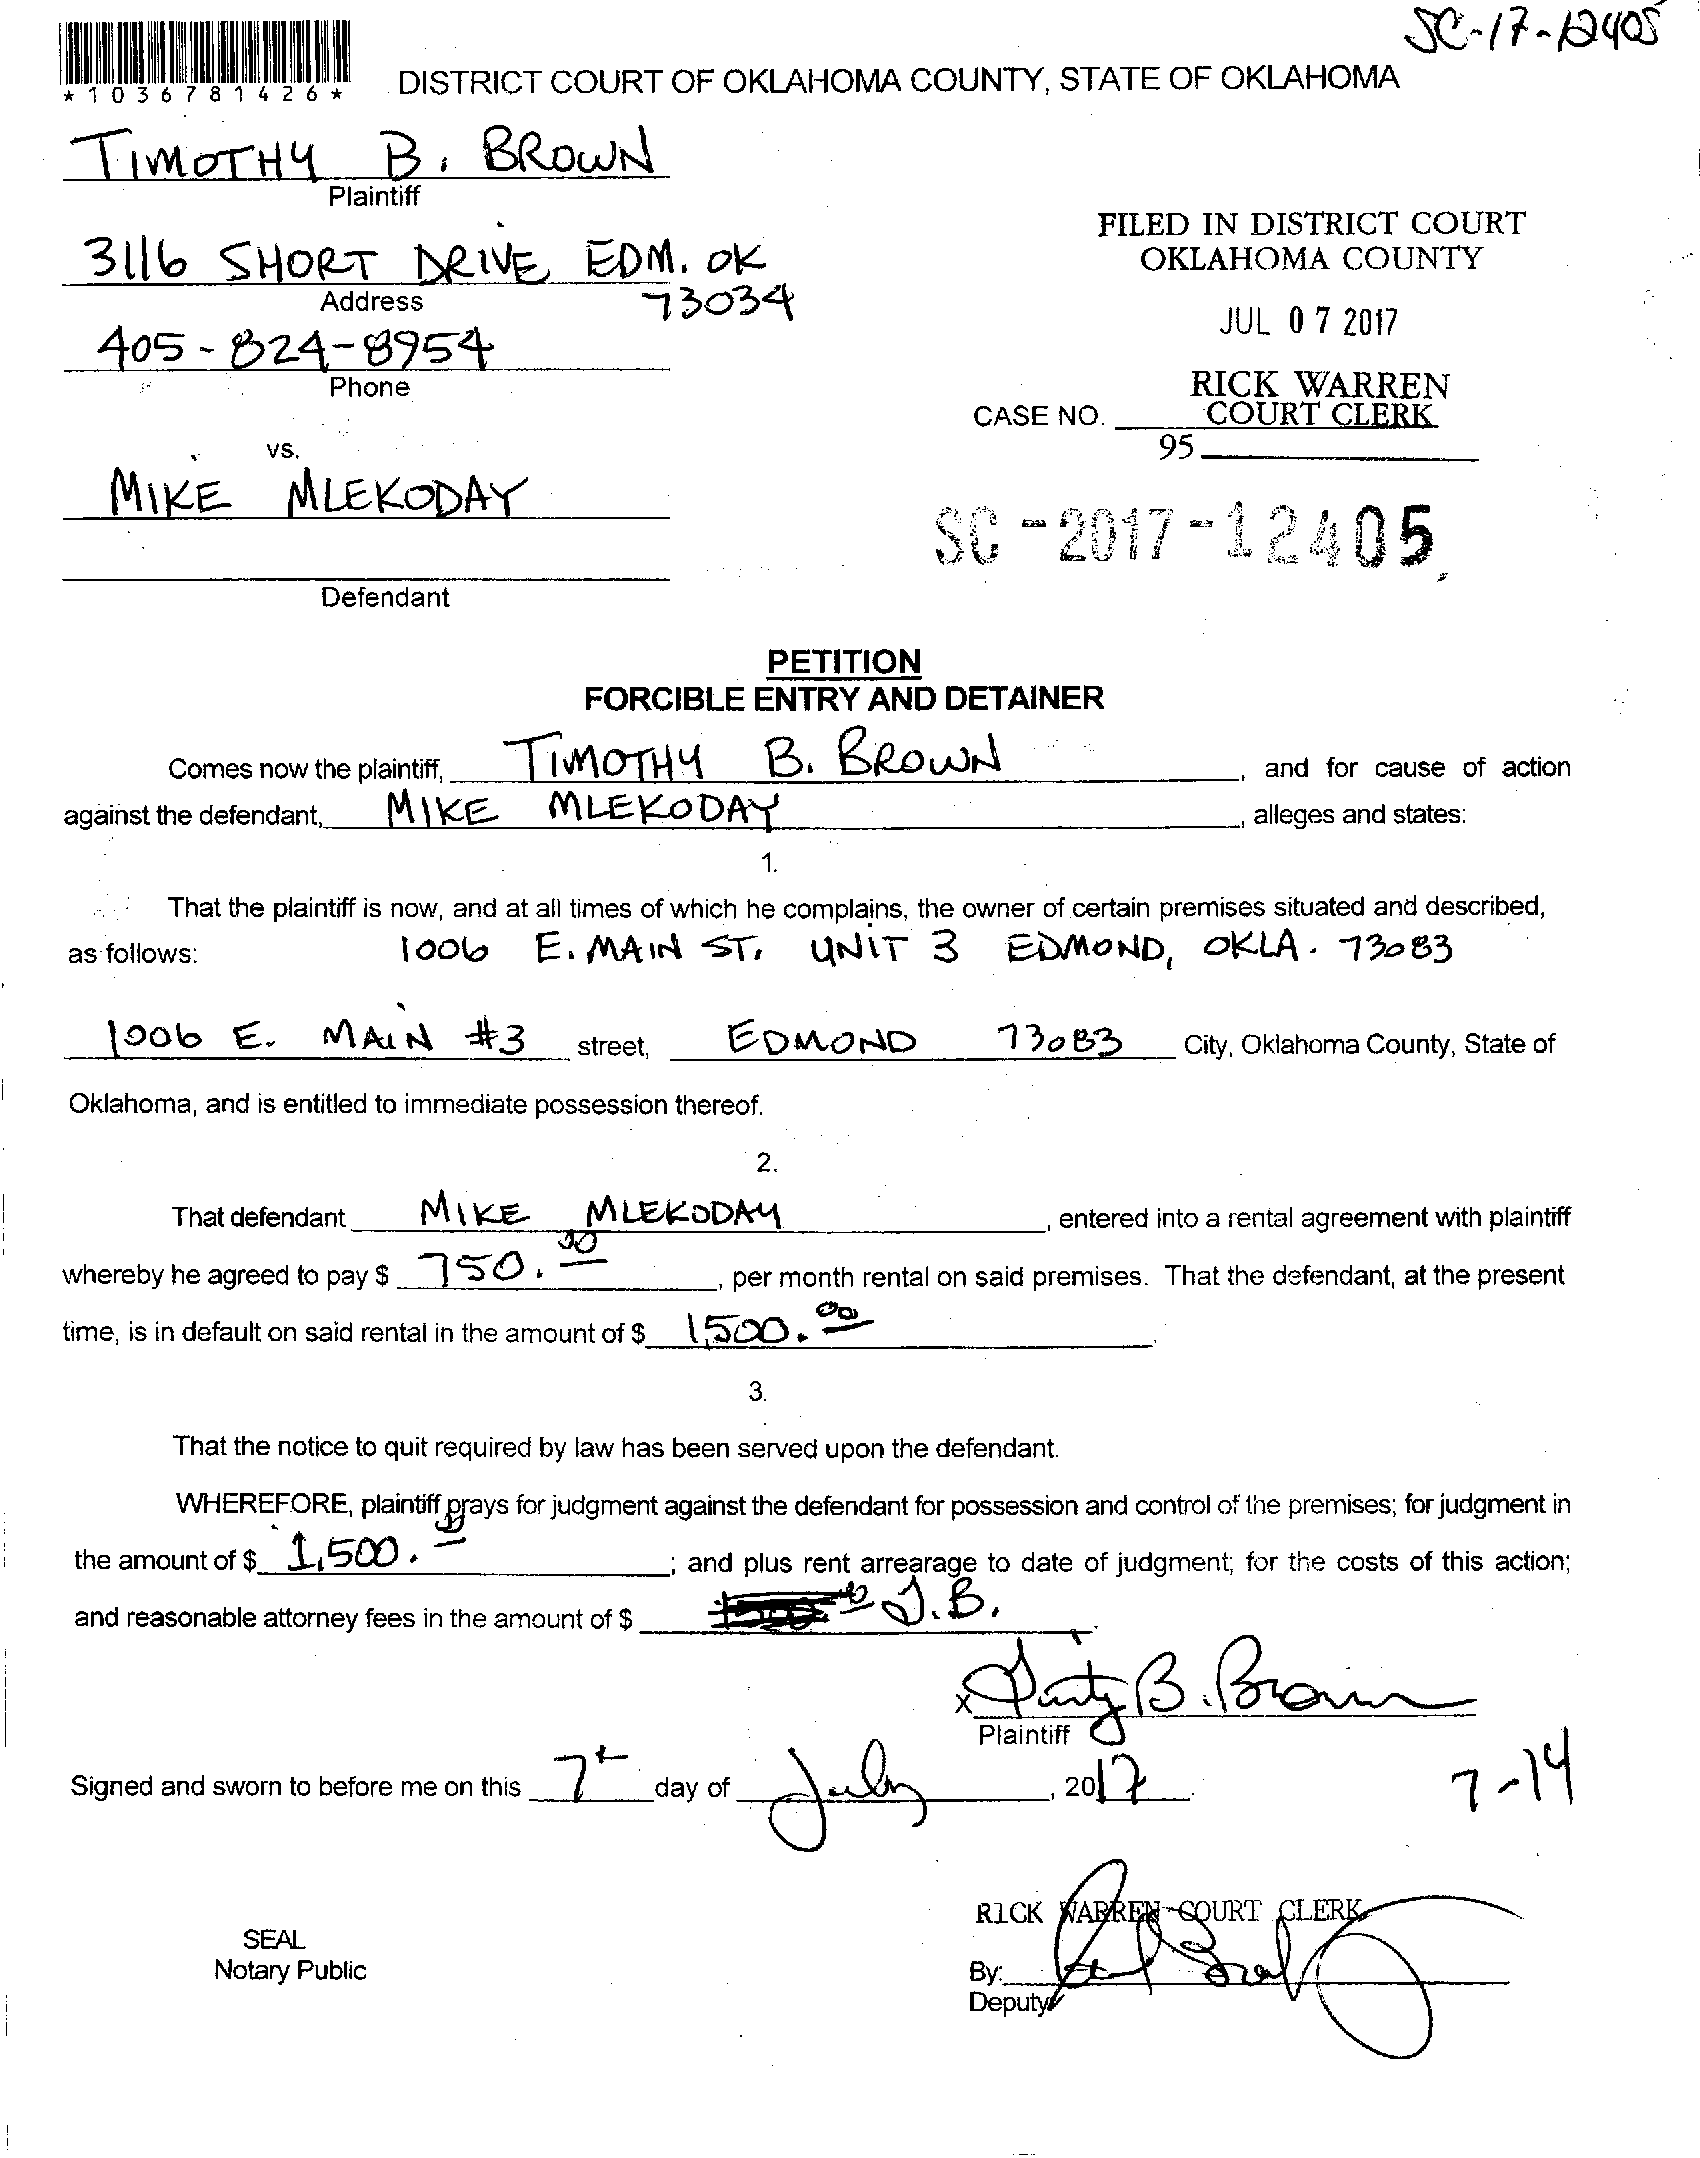 SC-17-12405
*1036781426*
DISTRICT COURT OF OKLAHOMA COUNTY, STATE OF OKLAHOMA
TIMOTHY B. BROWN
Plaintiff
3116 SHORT DRIVE EDM. OK
Address 73034
405-824-8954
Phone
FILED IN DISTRICT COURT
OKLAHOMA COUNTY
JUL 07 2017
RICK WARREN
CASE NO. COURT CLERK
95
vs.
MIKE MLEKODAY
SC-2017-12405
Defendant
PETITION
FORCIBLE ENTRY AND DETAINER
Comes now the plaintiff, TIMOTHY B. BROWN, and for cause of action
against the defendant, MIKE MLEKODAY, alleges and states:
1.
That the plaintiff is now, and at all times of which he complains, the owner of certain premises situated and described,
as follows: 1006 E. MAIN ST. UNIT 3 EDMOND, OKLA. 73083
1006 E. MAIN #3 street, EDMOND 73083 City, Oklahoma County, State of
Oklahoma, and is entitled to immediate possession thereof.
2.
That defendant MIKE MLEKODAY, entered into a rental agreement with plaintiff
whereby he agreed to pay $ 750.00, per month rental on said premises. That the defendant, at the present
time, is in default on said rental in the amount of $ 1,500.00.
3.
That the notice to quit required by law has been served upon the defendant.
WHEREFORE, plaintiff prays for judgment against the defendant for possession and control of the premises; for judgment in
the amount of $ 1,500.00; and plus rent arrearage to date of judgment; for the costs of this action;
and reasonable attorney fees in the amount of $ T.B.
x B. Brown
Plaintiff
Signed and sworn to before me on this 7th day of July, 2017. 7-14
RICK WARREN COURT CLERK
SEAL
Notary Public
By:
Deputy